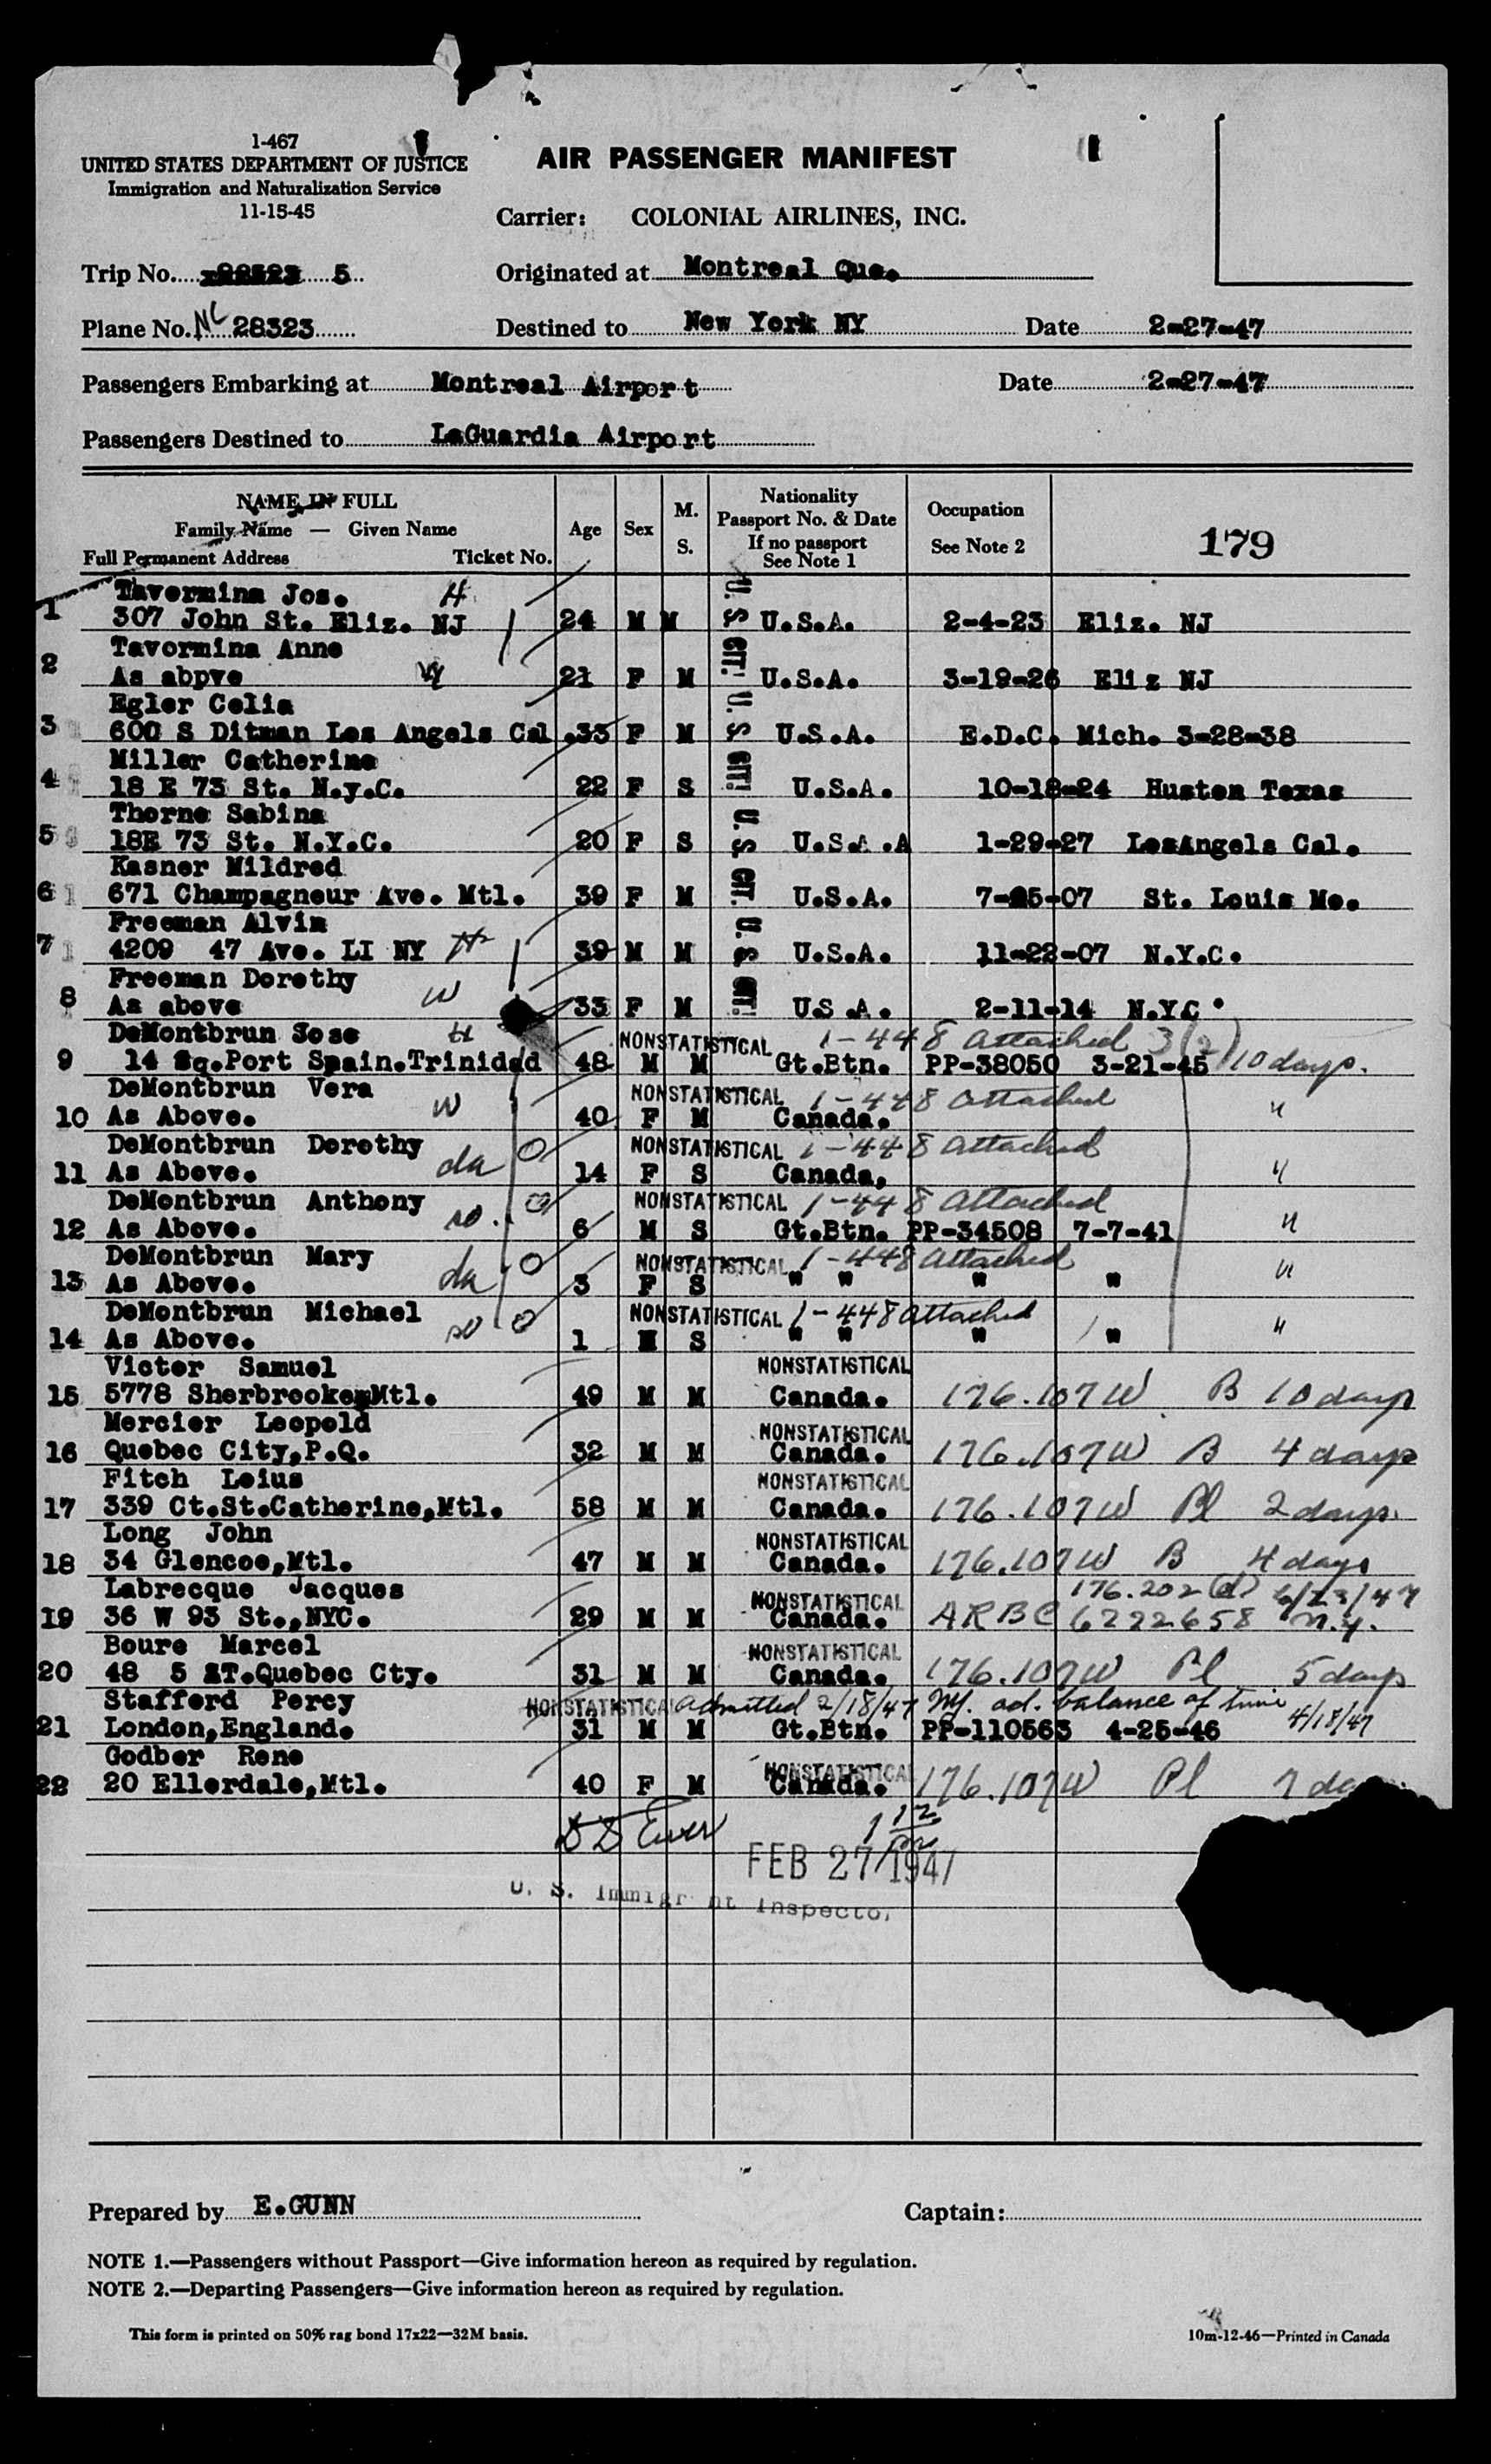 1-467
UNITED STATES DEPARTMENT OF JUSTICE
Immigration and Naturalization Service
11-15-45
AIR PASSENGER MANIFEST
Carrier: COLONIAL AIRLINES, INC.
Trip No. 5
Originated at Montreal Que.
Plane No. NC 28323
Destined to New York NY Date 2-27-47
Passengers Embarking at Montreal Airport Date 2-27-47
Passengers Destined to LaGuardia Airport
NAME IN FULL
Family Name — Given Name
Full Permanent Address Ticket No.
Age Sex M. S.
Nationality
Passport No. & Date
If no passport
See Note 1
Occupation
See Note 2
179
Tavormina Jos. H
1 307 John St. Eliz. NJ 24 M M U.S CIT. U.S.A. 2-4-23 Eliz. NJ
Tavormina Anne
2 As abpve W 21 F M U.S.A. 3-19-26 Eliz NJ
Egler Celia
3 600 S Ditman Los Angels Cal .33 F M U.S CIT. U.S.A. E.D.C. Mich. 3-28-38
Miller Catherine
4 18 E 73 St. N.y.C. 22 F S U.S.A. 10-18-24 Huston Texas
Thorne Sabina
5 18E 73 St. N.Y.C. 20 F S U.S CIT. U.S.A .A 1-29-27 LosAngels Cal.
Kasner Mildred
6 671 Champagneur Ave. Mtl. 39 F M U.S.A. 7-25-07 St. Louis Mo.
Freeman Alvin
7 4209 47 Ave. LI NY H 39 M M U.S CIT. U.S.A. 11-22-07 N.Y.C.
Freeman Dorothy
8 As above W 33 F M U.S.A. 2-11-14 N.Y.C.
DeMontbrun Jose H NONSTATISTICAL 1-448 attached 3(2)
9 14 Sq.Port Spain.Trinidad 48 M M Gt.Btn. PP-38050 3-21-45 10 days.
DeMontbrun Vera NONSTATISTICAL 1-448 attached
10 As Above. W 40 F M Canada. "
DeMontbrun Dorothy NONSTATISTICAL 1-448 attached
11 As Above. da 14 F S Canada, "
DeMontbrun Anthony NONSTATISTICAL 1-448 attached
12 As Above. so. 6 M S Gt.Btn. PP-34508 7-7-41 "
DeMontbrun Mary NONSTATISTICAL 1-448 attached
13 As Above. da 3 F S " " " " "
DeMontbrun Michael NONSTATISTICAL 1-448 attached
14 As Above. so 1 M S " " " " "
Victor Samuel NONSTATISTICAL
15 5778 Sherbrooke,Mtl. 49 M M Canada. 176.107W B 10 days
Mercier Leopold NONSTATISTICAL
16 Quebec City,P.Q. 32 M M Canada. 176.107W B 4 days
Fitch Loius NONSTATISTICAL
17 339 Ct.St.Catherine,Mtl. 58 M M Canada. 176.107W Pl 2 days.
Long John NONSTATISTICAL
18 34 Glencoe,Mtl. 47 M M Canada. 176.107W B 4 days
Labrecque Jacques NONSTATISTICAL 176.202(d) 6/23/47
19 36 W 93 St.,NYC. 29 M M Canada. ARBC 6222658 N.Y.
Boure Marcel NONSTATISTICAL
20 48 5 &T.Quebec Cty. 31 M M Canada. 176.107W Pl 5 days
Stafford Percy NONSTATISTICAL admitted 2/18/47 NY. ad. balance of time
21 London,England. 31 M M Gt.Btn. PP-110563 4-25-46 4/18/47
Godber Rene NONSTATISTICAL
22 20 Ellerdale,Mtl. 40 F M Canada. 176.107W Pl 7 da
1 12 pm
FEB 27 1947
U. S. Immigr nt Inspector
Prepared by E.GUNN
Captain:
NOTE 1.—Passengers without Passport—Give information hereon as required by regulation.
NOTE 2.—Departing Passengers—Give information hereon as required by regulation.
This form is printed on 50% rag bond 17x22—32M basis.
10m-12-46—Printed in Canada